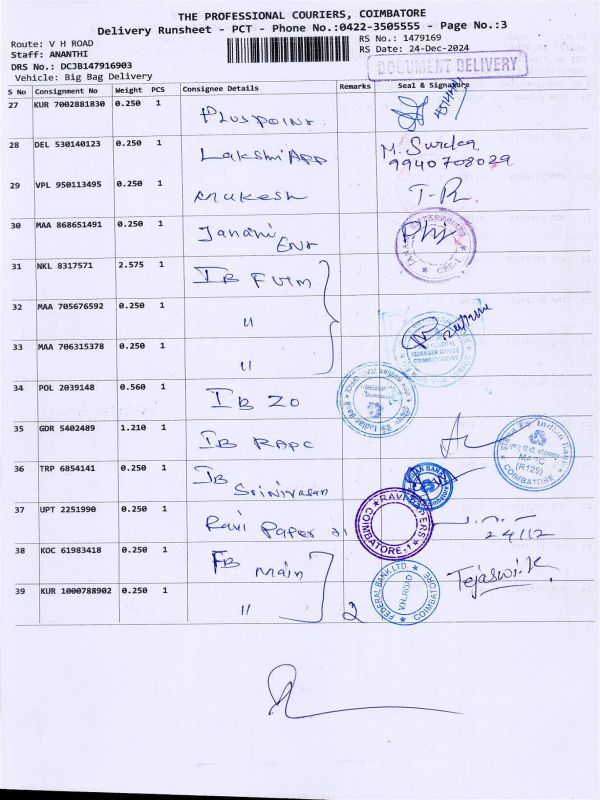 THE PROFESSIONAL COURIERS, COIMBATORE
Delivery Runsheet - PCT - Phone No.:0422-3505555 - Page No.:3
Route: V H ROAD
Staff: ANANTHI
DRS No.: DCJB147916903
Vehicle: Big Bag Delivery
RS No.: 1479169
RS Date: 24-Dec-2024
DOCUMENT DELIVERY
S No Consignment No Weight PCS Consignee Details Remarks Seal & Signature
27 KUR 7002881830 0.250 1 Pluspoint
28 DEL 530140123 0.250 1 Lakshmi App M. Surdea 9940708029
29 VPL 950113495 0.250 1 Mukesh
30 MAA 868651491 0.250 1 Janani Ent CBE-1
31 NKL 8317571 2.575 1 IB FGM
32 MAA 705676592 0.250 1 "
33 MAA 706315378 0.250 1 "
34 POL 2039148 0.560 1 IB ZO Indian Bank
35 GDR 5402489 1.210 1 IB RAPC Indian Bank MAPC (R129) COIMBATORE
36 TRP 6854141 0.250 1 IB Srinivasan
37 UPT 2251990 0.250 1 Ravi Paper RAVI PAPERS COIMBATORE-1 24/12
38 KOC 61983418 0.250 1 FB Main FEDERAL BANK LTD. V.H.ROAD COIMBATORE Tejaswi.K
39 KUR 1000788902 0.250 1 " 2